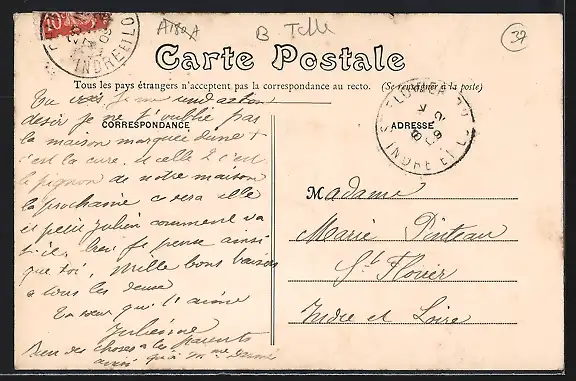 10
INDRE ET LOIRE
A182A
B Telle
37
Carte Postale
Tous les pays étrangers n'acceptent pas la correspondance au recto. (Se renseigner à la poste)
Tu vois je me
désir je ne t'oublie pas
CORRESPONDANCE
la maison marquee dune +
c'est la cure. et celle 2 c'est
le pignon de notre maison
la prochaine ce sera elle
et petit Julien comment va
t-il, bien je pense ainsi
que toi, Mille bons baisers
a tous les deux
Ta soeur qui t'aime
Julienne
Bien des choses a tes parents
ainsi qu'à
ADRESSE
FLOVIER
INDRE ET L
Madame
Marie Pinteau
St Flovier
Indre et Loire